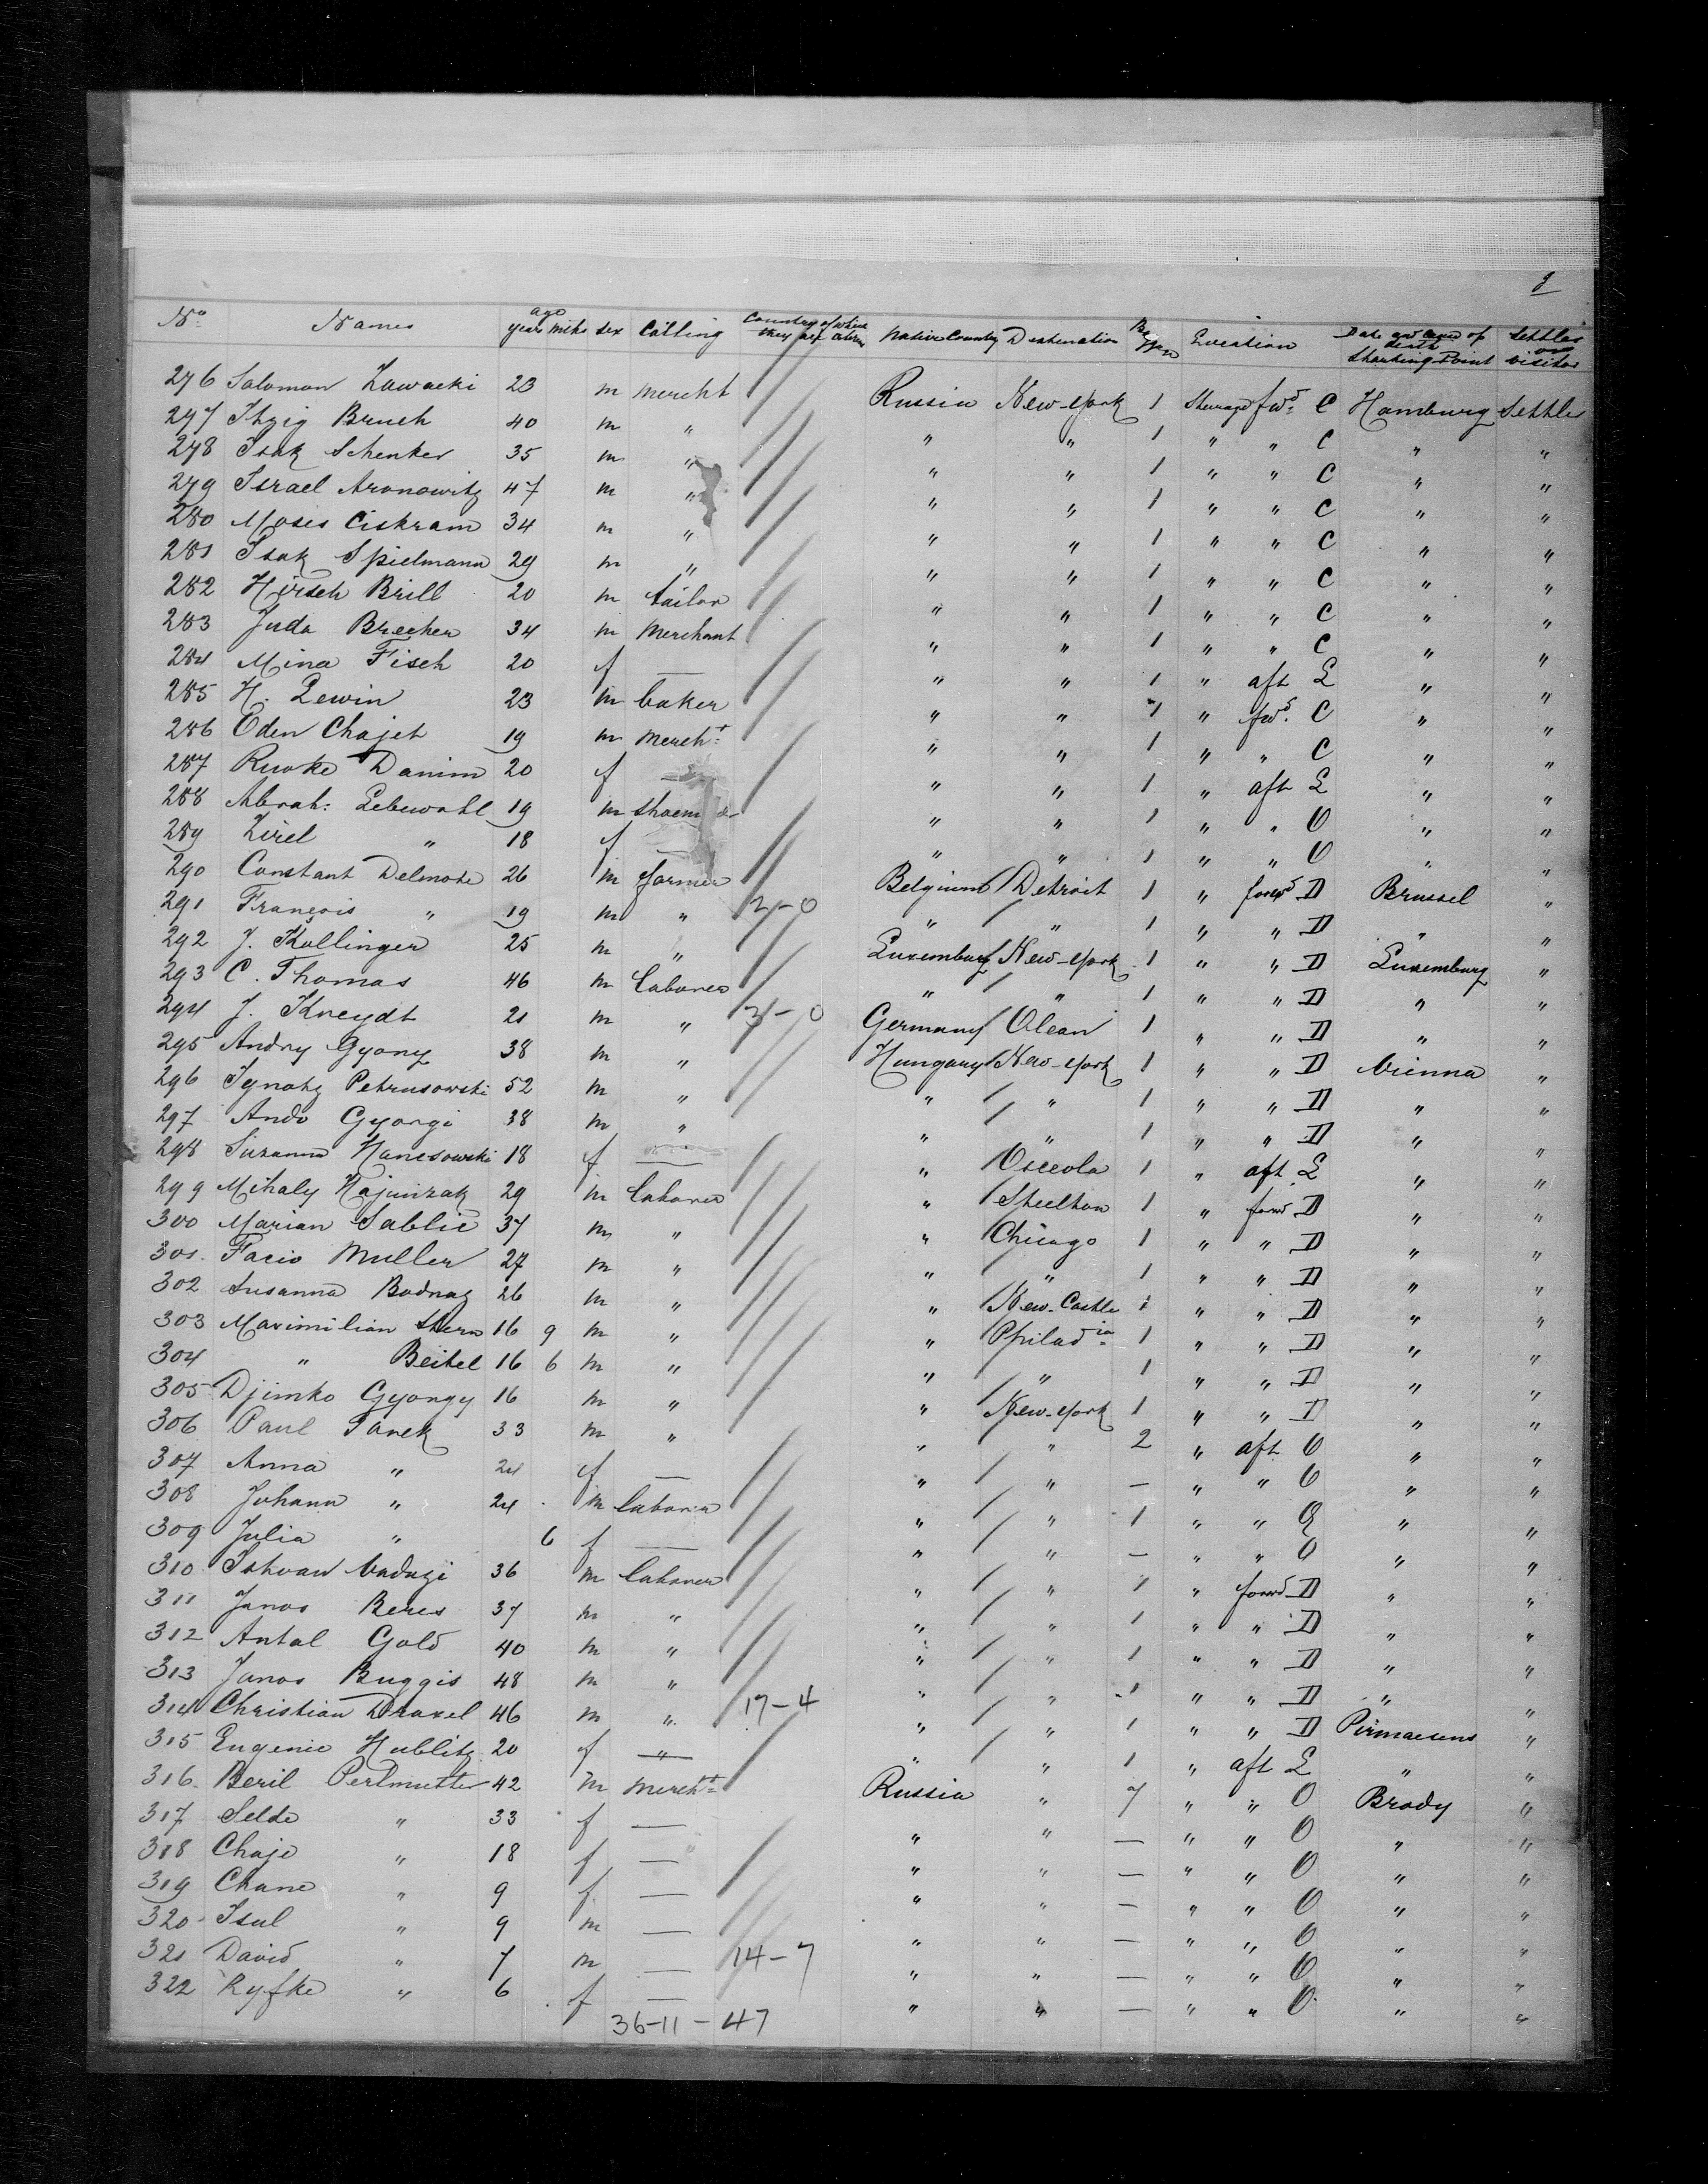 g
No. Names age years mths sex Calling Country of which they are citizens Native Country Destination Location Date and cause of death Starting Point Settler or visitor
276 Salomon Zawacki 23 m mercht Russia New-York 1 Steerage fwd. C Hamburg Settler
277 Itzig Bruch 40 m " " " 1 " " C " "
278 Isak Schenker 35 m " " " 1 " " C " "
279 Israel Aronowitz 47 m " " " 1 " " C " "
280 Moses Ciskram 34 m " " " 1 " " C " "
281 Isak Spielmann 29 m " " " 1 " " C " "
282 Hirsch Brill 20 m tailor " " 1 " " C " "
283 Juda Brecher 34 m Merchant " " 1 " " C " "
284 Mina Fisch 20 f — " " 1 " aft E " "
285 H. Lewin 23 m baker " " 1 " fwd. C " "
286 Eden Chajet 19 m Mercht " " 1 " " C " "
287 Rucoke Danim 20 f — " " 1 " aft E " "
288 Abrah: Lebewohl 19 m " " 1 " " O " "
289 Zirel " 18 f — " " 1 " " O " "
290 Constant Delmote 26 m farmer Belgium Detroit 1 " forwd D Brussel "
291 François " 19 m " 2-0 " " 1 " " D " "
292 J. Kollinger 25 m " Luxemburg New-York 1 " " D Luxemburg "
293 C. Thomas 46 m laborer " " 1 " " D " "
294 J. Kneydt 21 m " 3-0 Germany Olean 1 " " D " "
295 Andry Gyony 38 m " Hungary New-York 1 " " D Vienna "
296 Ignatz Petrusowski 52 m " " " 1 " " D " "
297 Ando Gyorgi 38 m " " " 1 " " D " "
298 Suzanna Hanesowski 18 f — " Osceola 1 " aft E " "
299 Mihaly Hajuizak 29 m laborer " Steelton 1 " forwd D " "
300 Marian Sablic 37 m " " Chicago 1 " " D " "
301 Facio Muller 27 m " " " 1 " " D " "
302 Susanna Bodnaz 26 m " " New-Castle 1 " " D " "
303 Maximilian Stern 16 9 m " " Philadia 1 " " D " "
304 " Beitel 16 6 m " " " 1 " " D " "
305 Djimko Gyorgy 16 m " " New-York 1 " " D " "
306 Paul Janek 33 m " " " 2 " aft O " "
307 Anna " 24 f — " " — " " O " "
308 Johann " 24 m laborer " " 1 " " O " "
309 Julia " 6 f — " " — " " O " "
310 Istvan Vadazi 36 m laborer " " 1 " forwd D " "
311 Janos Beres 37 m " " " 1 " " D " "
312 Antal Gold 40 m " " " 1 " " D " "
313 Janos Buggis 48 m " " " 1 " " D " "
314 Christian Draxel 46 m " 17-4 " " 1 " " D Pirmasens "
315 Eugenie Hublitz 20 f " " " 1 " aft E " "
316 Beril Perlmutter 42 m Mercht Russia " 7 " " O Brody "
317 Selde " 33 f — " " — " " O " "
318 Chaje " 18 f — " " — " " O " "
319 Chane " 9 f — " " — " " O " "
320 Isul " 9 m — " " — " " O " "
321 David " 7 m — 14-7 " " — " " O " "
322 Ryfke " 6 f — " " — " " O " "
36-11-47